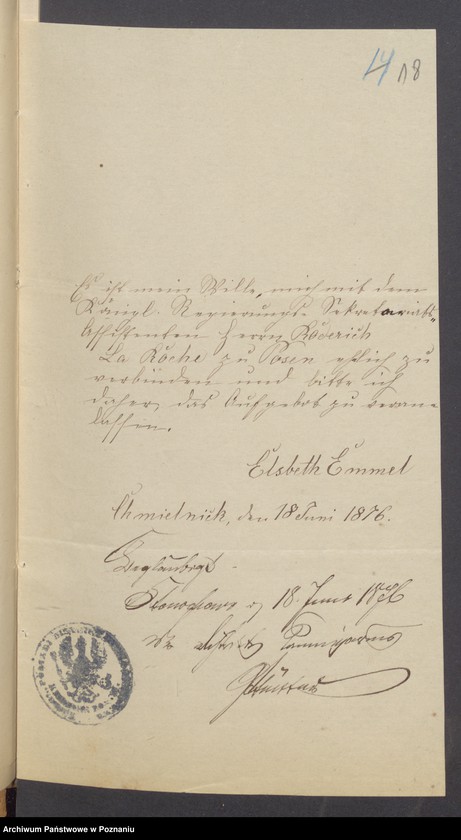 14 18
Es ist mein Wille, mich mit dem
Königl. Regierungs-Sekretariats-
Assistenten Herrn Roderich
La Roche zu Posen ehlich zu
verbinden und bitte ich
daher, das Aufgebot zu veran-
lassen.
Elsbeth Emmel
Chmielnik, den 18 Juni 1876.
Beglaubigt
18. Juni 1876
Archiwum Państwowe w Poznaniu